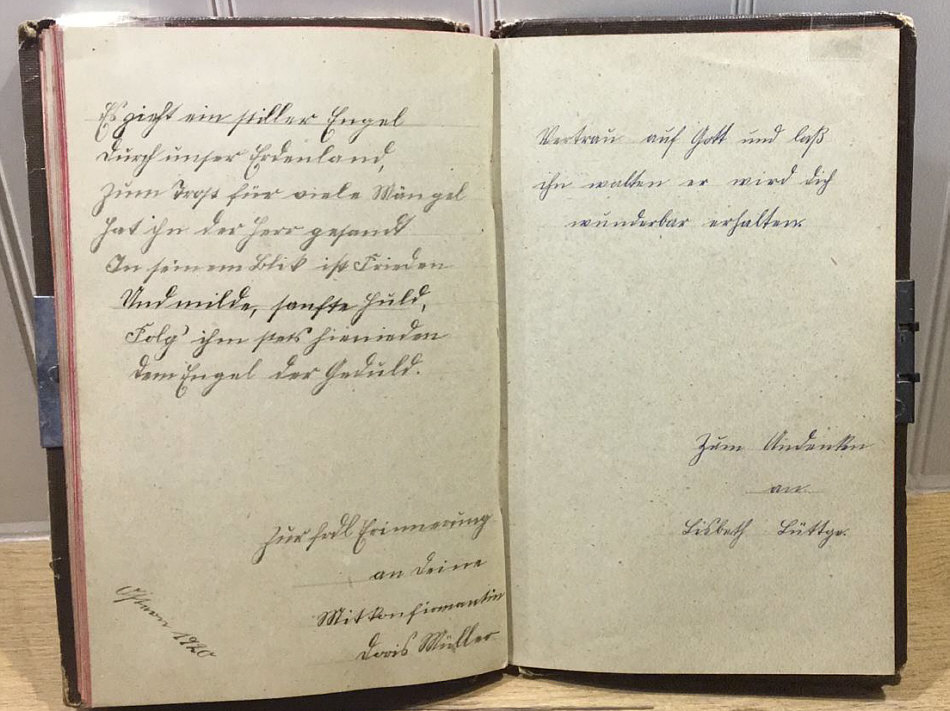 Es zieht ein stiller Engel
durch unser Erdenland,
zum Trost für viele Mängel
hat ihn der Herr gesandt
In seinem Blik ist Frieden
Und milde, sanfte Huld,
Folg' ihm stets hienieden
dem Engel der Geduld.
Zur frdl Erinnerung
an deine
Mitkonfirmantin
Doris Müller
Ostern 1920
Vertrau auf Gott und laß
ihn walten er wird dich
wunderbar erhalten.
Zum Andenken
an
Lisbeth Lüttge.